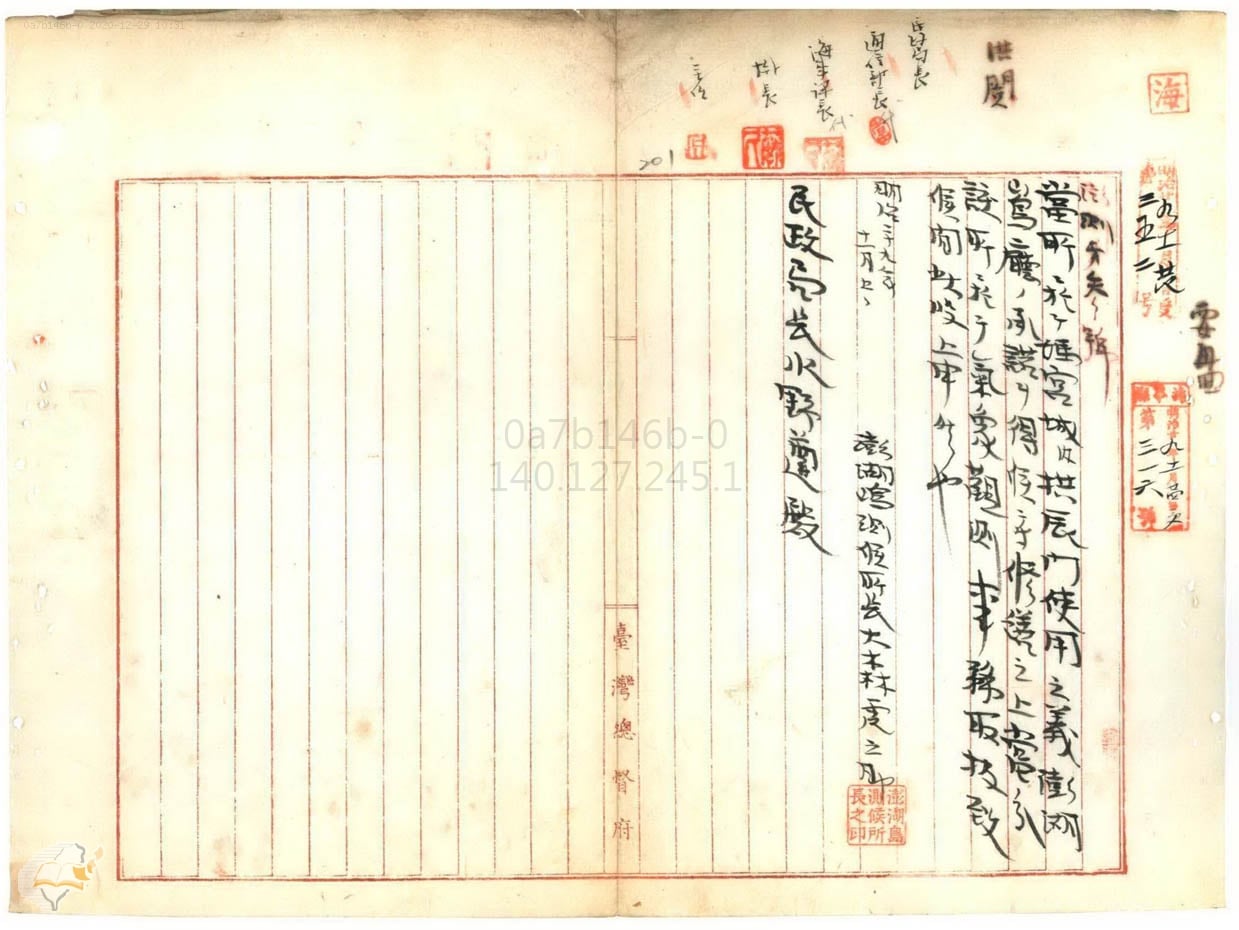 0a7b146b-0 2020-12-29 10:31
海
供閲
民政局長
通信部長 代
海事課長 代
掛長
主任
201
第二五二号
第三一六号
澎測第 号
當所ニ於テ媽宮城内拱辰門使用之義澎湖
島廳ノ承諾ヲ得候ニ予修繕之上當分
該所ニ於テ氣象觀測事務取扱致
候間此段上申候也
明治二十九年
十一月
澎湖島測候所長大木森虎之助
澎湖島測候所長之印
民政局長水野遵殿
臺灣總督府
0a7b146b-0
140.127.245.1